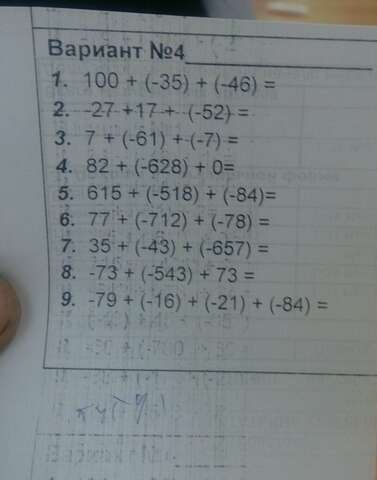 Вариант №4
1. 100 + (-35) + (-46) =
2. -27 +17 + (-52) =
3. 7 + (-61) + (-7) =
4. 82 + (-628) + 0=
5. 615 + (-518) + (-84)=
6. 77 + (-712) + (-78) =
7. 35 + (-43) + (-657) =
8. -73 + (-543) + 73 =
9. -79 + (-16) + (-21) + (-84) =